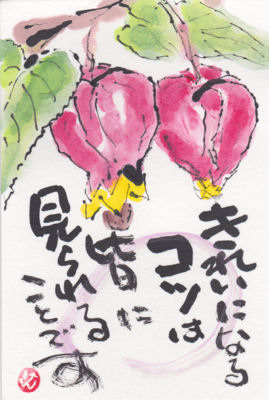 きれいになる
コツは
皆に
見られる
ことです